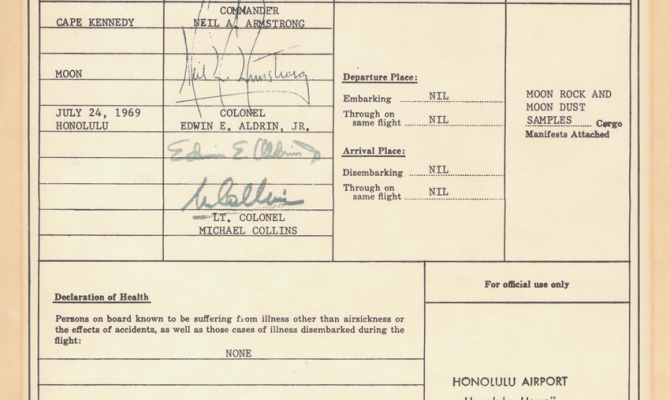 COMMANDER
CAPE KENNEDY
NEIL A. ARMSTRONG
Neil A. Armstrong
MOON
JULY 24, 1969
HONOLULU
COLONEL
EDWIN E. ALDRIN, JR.
Edwin E Aldrin Jr
M Collins
LT. COLONEL
MICHAEL COLLINS
Departure Place:
Embarking NIL
Through on
same flight NIL
Arrival Place:
Disembarking NIL
Through on
same flight NIL
MOON ROCK AND
MOON DUST
SAMPLES Cargo
Manifests Attached
Declaration of Health
Persons on board known to be suffering from illness other than airsickness or
the effects of accidents, as well as those cases of illness disembarked during the
flight:
NONE
For official use only
HONOLULU AIRPORT
Honolulu, Hawaii